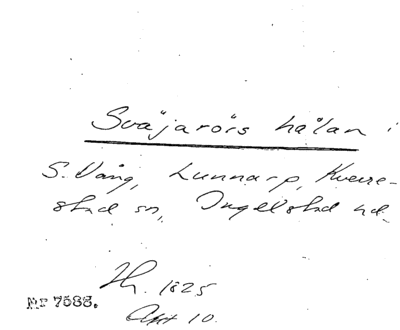 Sväjarörs hålan i
S. Vång, Lunnarp, Kverre-
stad sn, Ingelstad hd.
Th. 1825
Akt 10.
MP 7588.